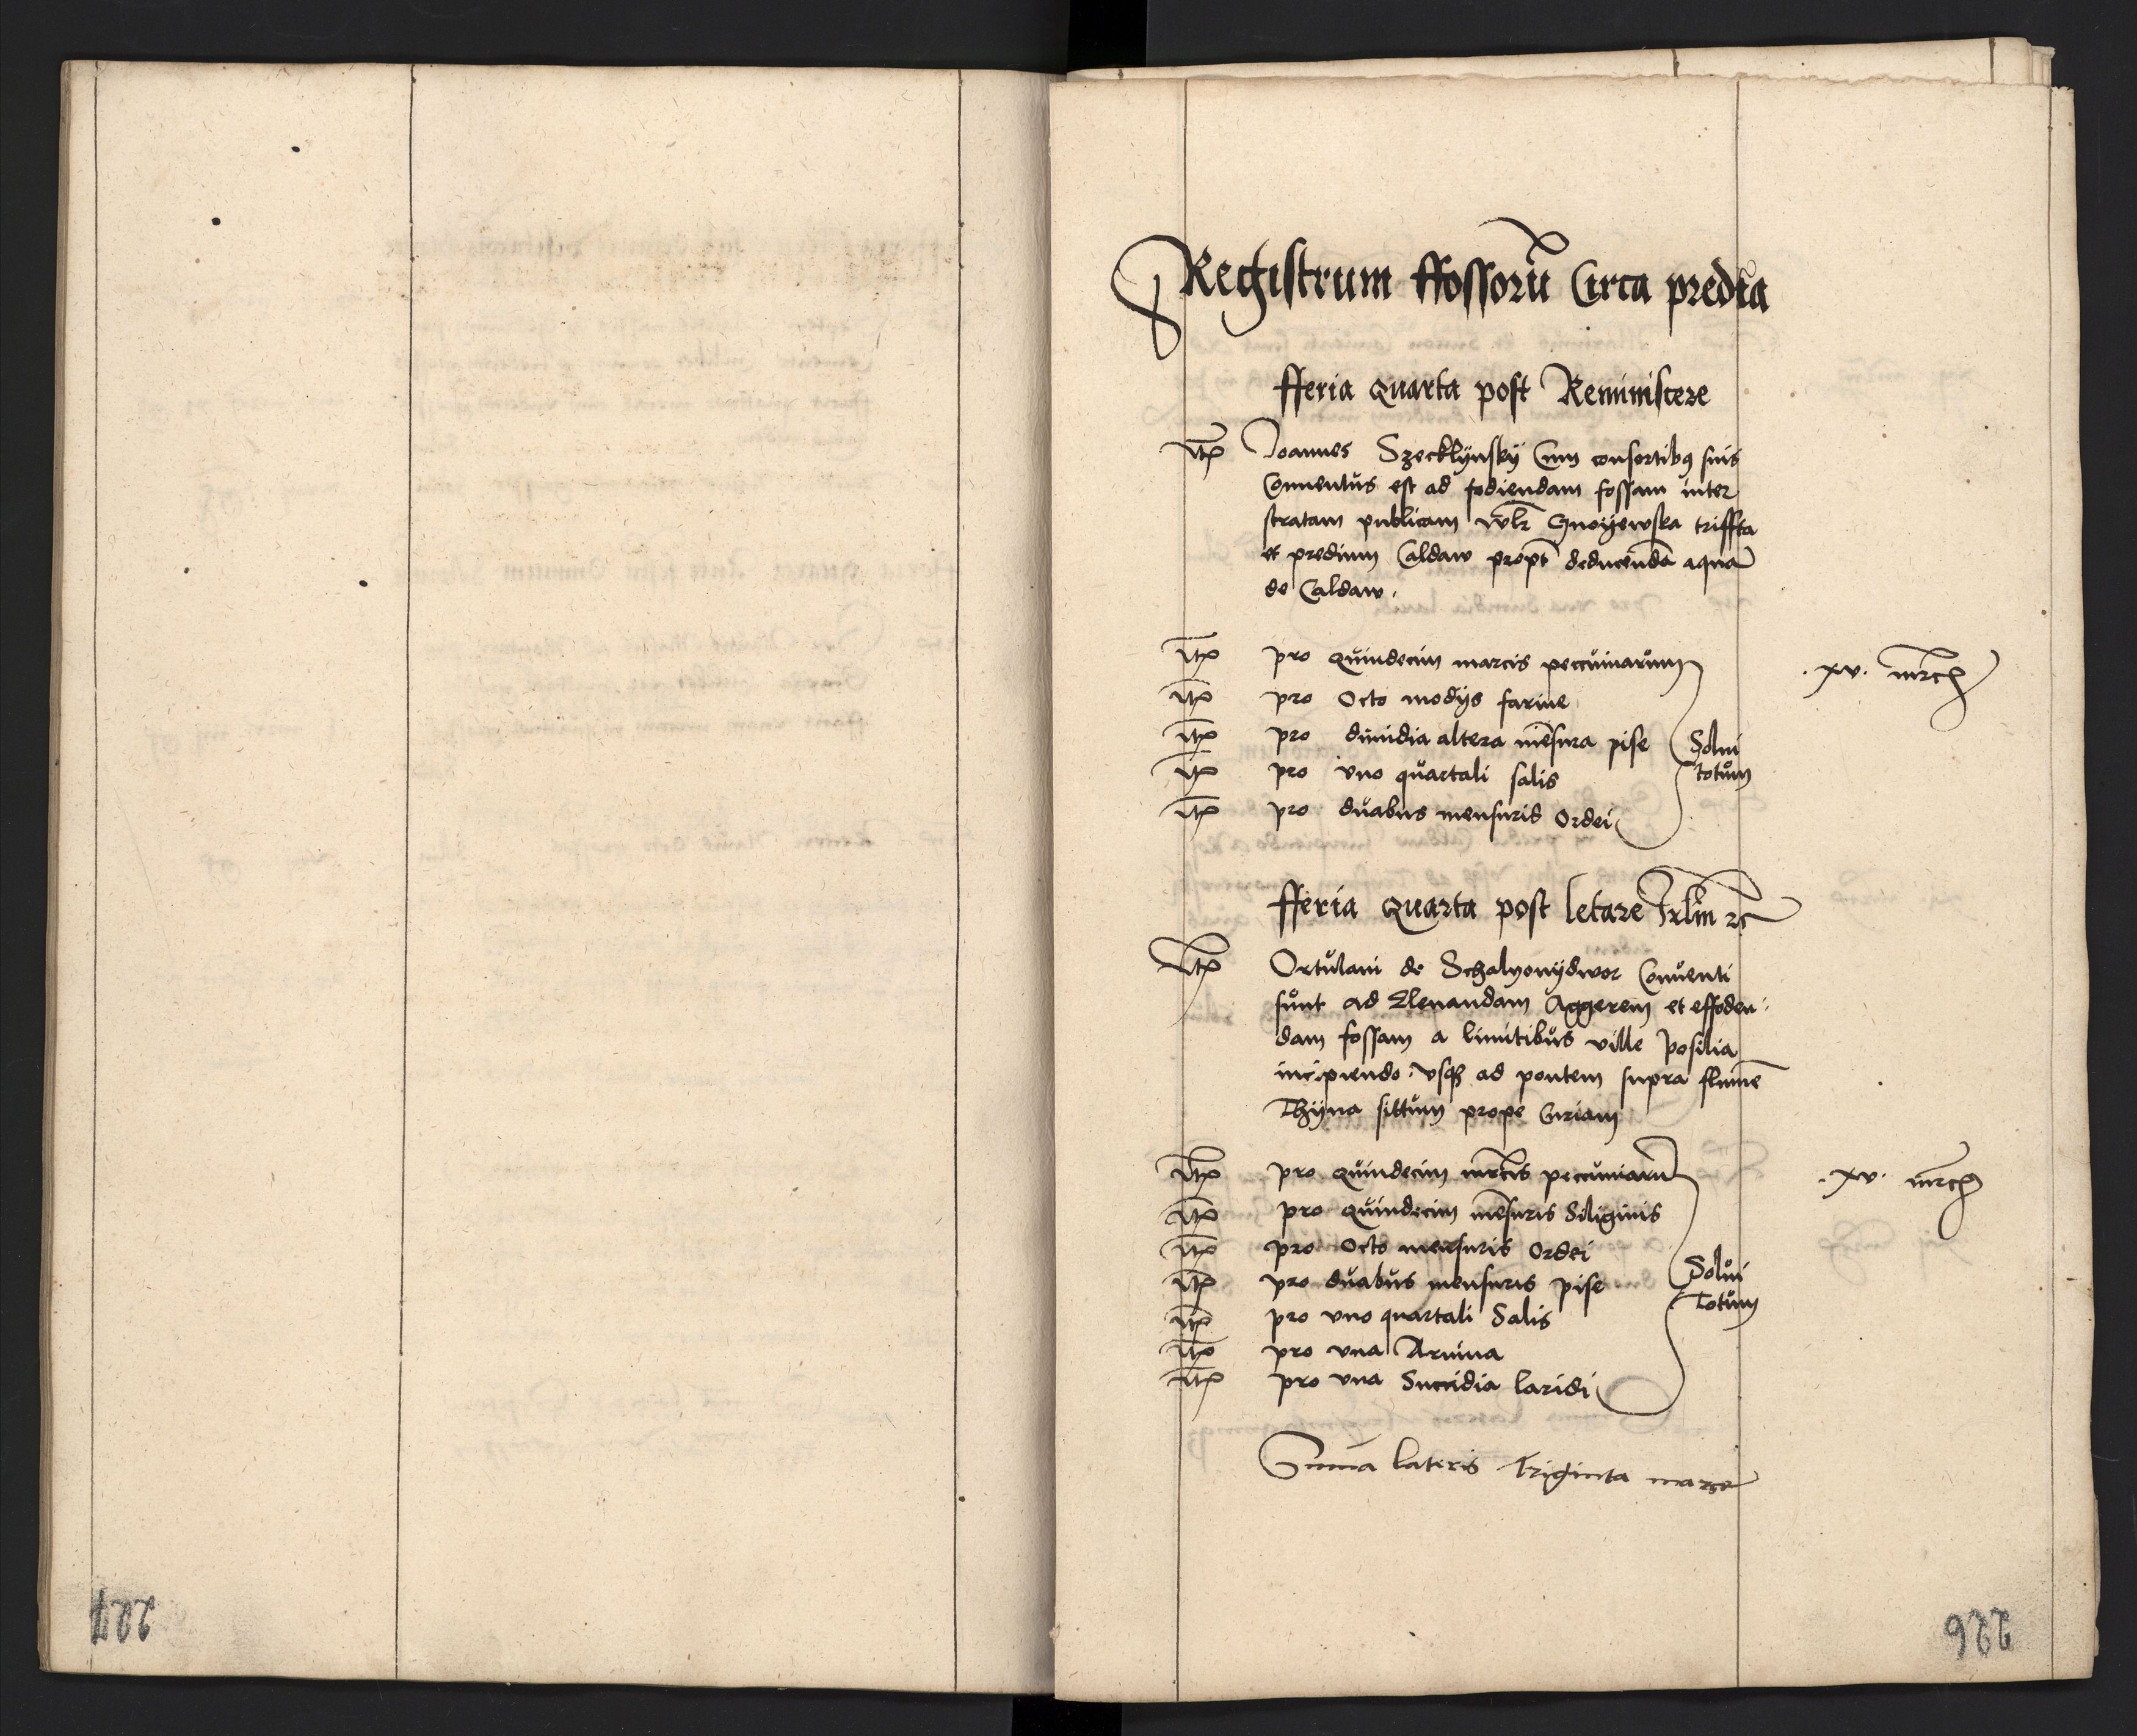 Registrum ffossorū Circa predia
fferia quarta post Reminiscere
Itē Joannes Szecklÿnskÿ Cum consortibꝫ suis
Conventus est ad fodiendam fossam inter
stratam publicam vulr̄ Gnoÿewska triffta
et predium Caldaw propt̄ deducendā aquā
de Caldaw.
Itē pro quindecim marcis peccuniarum
.xv. mrc̄
Itē pro Octo modÿs farine
Itē pro dimidia altera mēsura pise
Solui
Itē pro vno quartali salis
totum
Itē pro duabus mensuris Ordei
fferia quarta post letare Jrlm̄ rc
Itē Ortulani de Schalyonÿdwor Conuenti
sunt ad Elenandam Aggerem et effoden
dam fossam a limitibus ville posilia
incipiendo vsqꝫ ad pontem supra flumē
Thÿna sittum prope Curiam
Itē pro quindecim mrcis peccuniarū
.xv. mrc̄
Itē pro quindecim mēsuris Siliginis
Itē pro Octo mensuris Ordei
Itē pro duabus mensuris pise
Solui
Totum
Itē pro vno quartali Salis
Itē pro vna Aruina
Itē pro vna Succidia laridi
Suma lateris Triginta marc
227
226